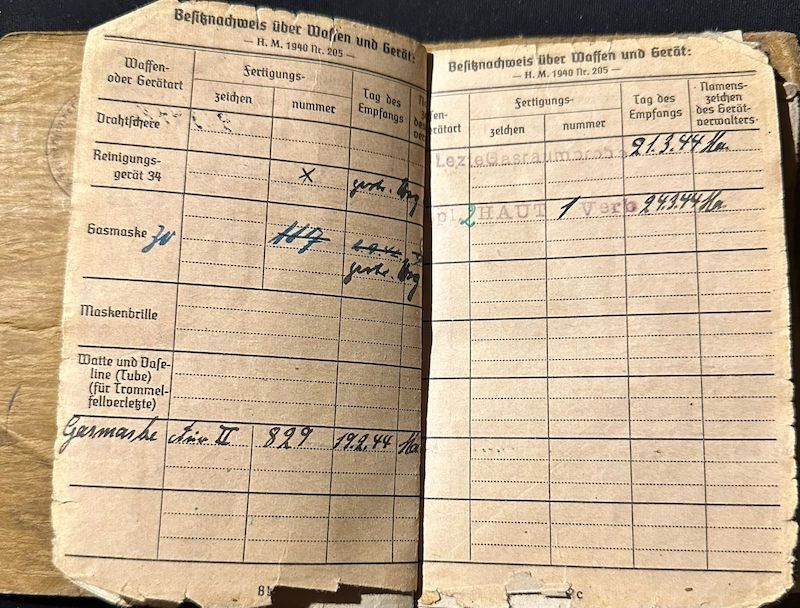 Besitznachweis über Waffen und Gerät:
— H. M. 1940 Nr. 205 —
Waffen-
oder Gerätart
Fertigungs-
zeichen
nummer
Tag des
Empfangs
Drahtschere
Reinigungs-
gerät 34
×
Gasmaske 30
117
Maskenbrille
Watte und Vase-
line (Tube)
(für Trommel-
fellverletzte)
Gasmaske II 829 19.2.44 Ha
Besitznachweis über Waffen und Gerät:
— H. M. 1940 Nr. 205 —
fen-
erätart
Fertigungs-
zeichen
nummer
Tag des
Empfangs
Namens-
zeichen
des Gerät-
verwalters
LezteGasraumprobe 21.3.44 Ha.
pl. 2 HAUT 1 Verb 24.3.44 Ha.
8
c